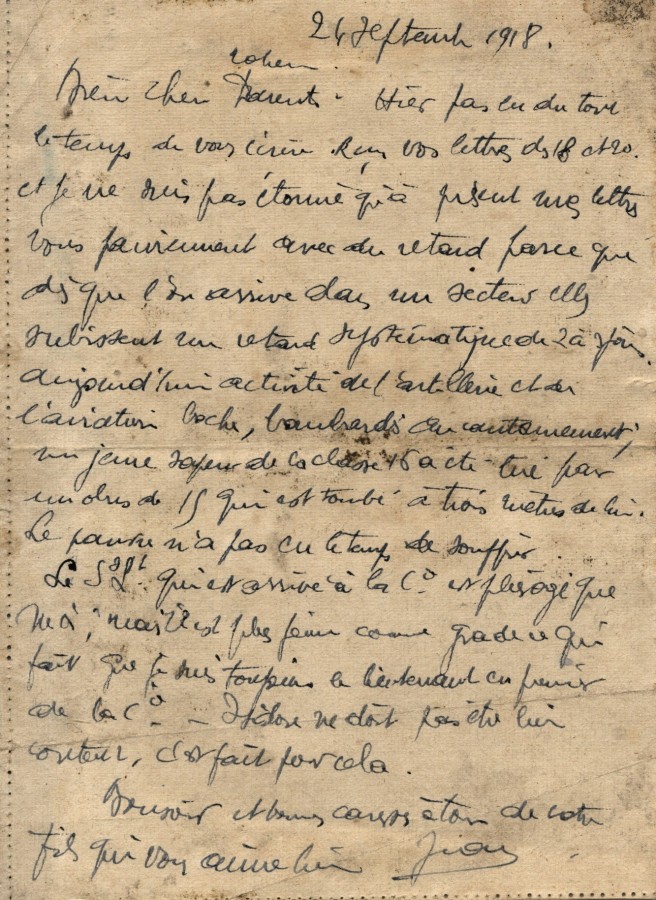 24 Septemb 1918.
Bien Chers Parents. Hier pas eu du tout
le temps de vous écrire. Reçu vos lettres du 18 et 20.
et je ne suis pas étonné qu'à présent mes lettres
vous parviennent avec du retard parce que
dès que l'on arrive dans un secteur elles
subissent un retard systématique de 2 à 3 jours.
aujourd'hui activité de l'artillerie et de
l'aviation boche, bombardé au cantonnement,
un jeune sapeur de la classe 16 a été tué par
un obus de 15 qui est tombé à trois mètres de lui.
Le pauvre n'a pas eu le temps de souffrir.
Le S/Lt qui est arrivé à la Cie est plus âgé que
moi, mais il est plus jeune comme grade ce qui
fait que je suis toujours le lieutenant en premier
de la Cie. — ne doit pas être bien
content, c'est fait pour cela.
Bonsoir et bonnes caresses à tous de votre
fils qui vous aime bien Jean